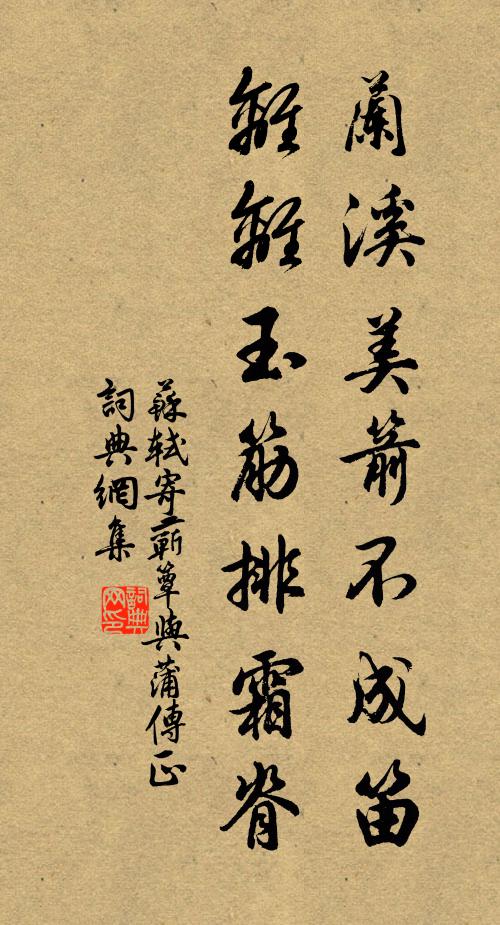 蘭溪美箭不成笛
離離玉筋排霜脊
蘇軾寄蘄簟與蒲傳正
詞典網集
詞典网印